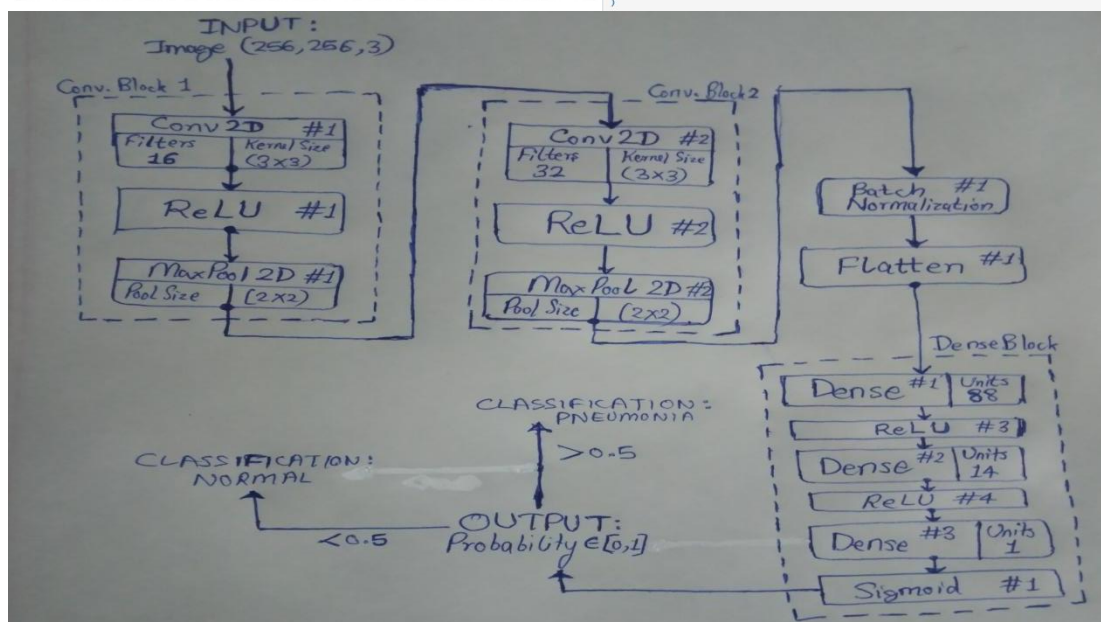 INPUT:
Image (256,256,3)
Conv. Block 1
Conv2D #1
Filters
16
Kernel Size
(3×3)
ReLU #1
MaxPool 2D #1
Pool Size
(2×2)
Conv. Block2
Conv2D #2
Filters
32
Kernel Size
(3×3)
ReLU #2
MaxPool 2D #2
Pool Size
(2×2)
Batch #1
Normalization
Flatten #1
DenseBlock
Dense #1
Units
88
ReLU #3
Dense #2
Units
14
ReLU #4
Dense #3
Units
1
Sigmoid #1
OUTPUT:
Probability ∈ [0,1]
>0.5
CLASSIFICATION:
PNEUMONIA
<0.5
CLASSIFICATION:
NORMAL